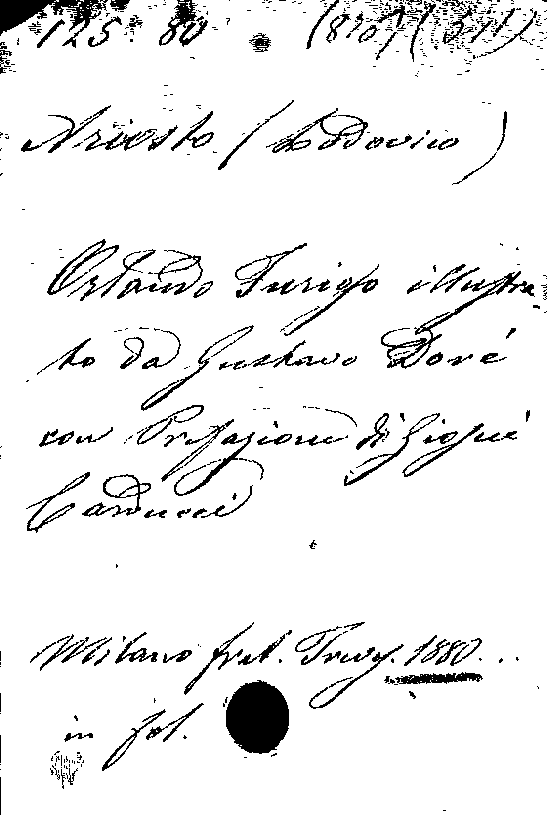 125. 80 (870) (511)
Ariosto (Lodovico)
Orlando Furioso illustra
to da Gustavo Doré
con Prefazione di Giosuè
Carducci
Milano frat. Trev. 1880...
in fol.